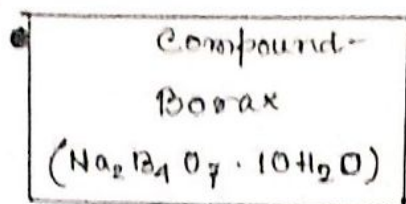 Compound-
Borax
(Na₂B₄O₇·10H₂O)